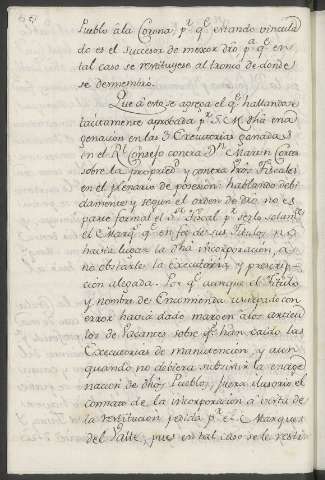 Pueblo âla Corona, pr. qe. estando vincula
do es el succesor de mexor dro pa. qe. en
tal caso se restituyese al tronco de donde
se desmembró.
Que â esto se agrega el qe. hallandose
tacitamente aprobada pr. S. M. dha ena
genacion en las 3 Executorias ganadas
en el Rl. Consejo contra Dn. Martin Cortes
sobre la propriedd. y contra dhos Fiscales
en el plenario de posesion: hablando debi
damente y segun el orden de dro no es
parte formal el Sr. Fiscal pr. serlo solamte.
el Marqs. qe. en fuerza de sus Titulos no
havia lugar la dha incorporacion, â
no obstarle la executoria y prescrip
cion alegada. Por qe. aunque el Titulo
y nombre de Encomienda usurpado con
error havia dado margen alos articu
los de Vacantes sobre qe. han caido las
Executorias de manutencion, y aun
quando no debiera subsistir la enage
nacion de dhos Pueblos, fuera ilusorio el
conato de la incorporacion â vista de
la restitucion pedida pr. el Marques
del Valle, pues en tal caso se le restitu